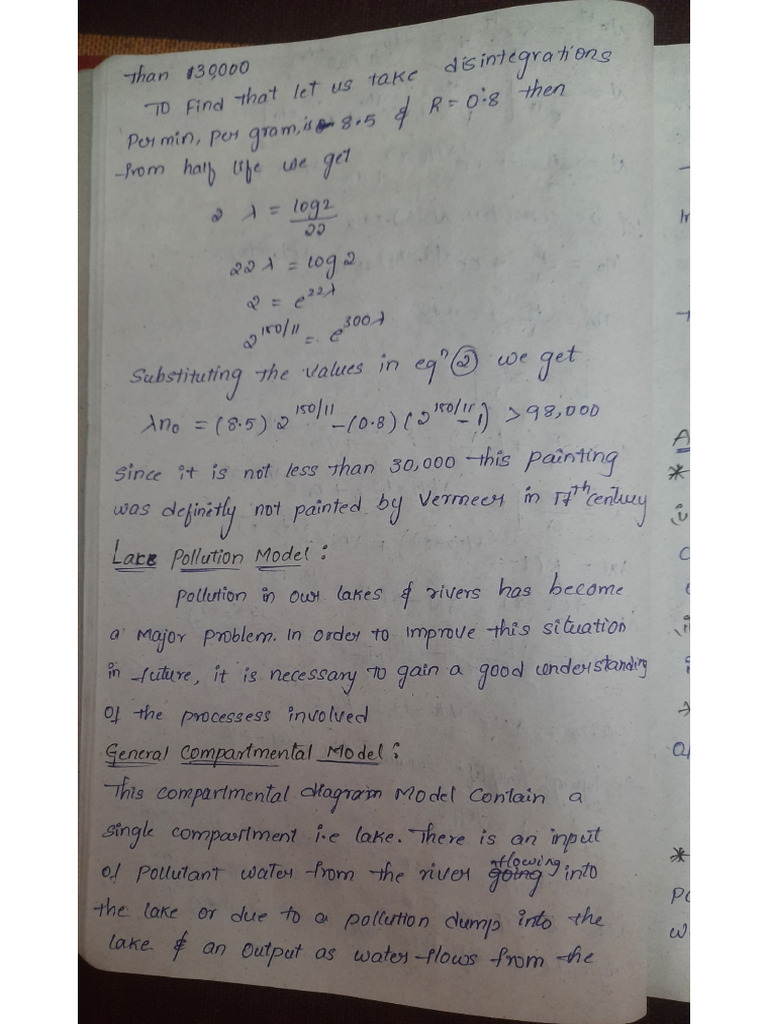 than 30,000
To Find that let us take disintegrations
Per min, per gram, is 8.5 & R = 0.8 then
from half life we get
2 λ = log2/22
22λ = log 2
2 = e^22λ
2^150/11 = e^300λ
Substituting the values in eqⁿ ② we get
λn₀ = (8.5) 2^150/11 - (0.8) (2^150/11 - 1) > 98,000
Since it is not less than 30,000 this painting
was definetly not painted by Vermeer in 17th century
Lake Pollution Model :
Pollution in our lakes & rivers has become
a Major problem. In order to improve this situation
in future, it is necessary to gain a good understanding
of the processess involved
General Compartmental Model :
This compartmental diagram Model contain a
single compartment i.e lake. There is an input
of pollutant water from the river flowing into
the lake or due to a pollution dump into the
lake & an output as water flows from the